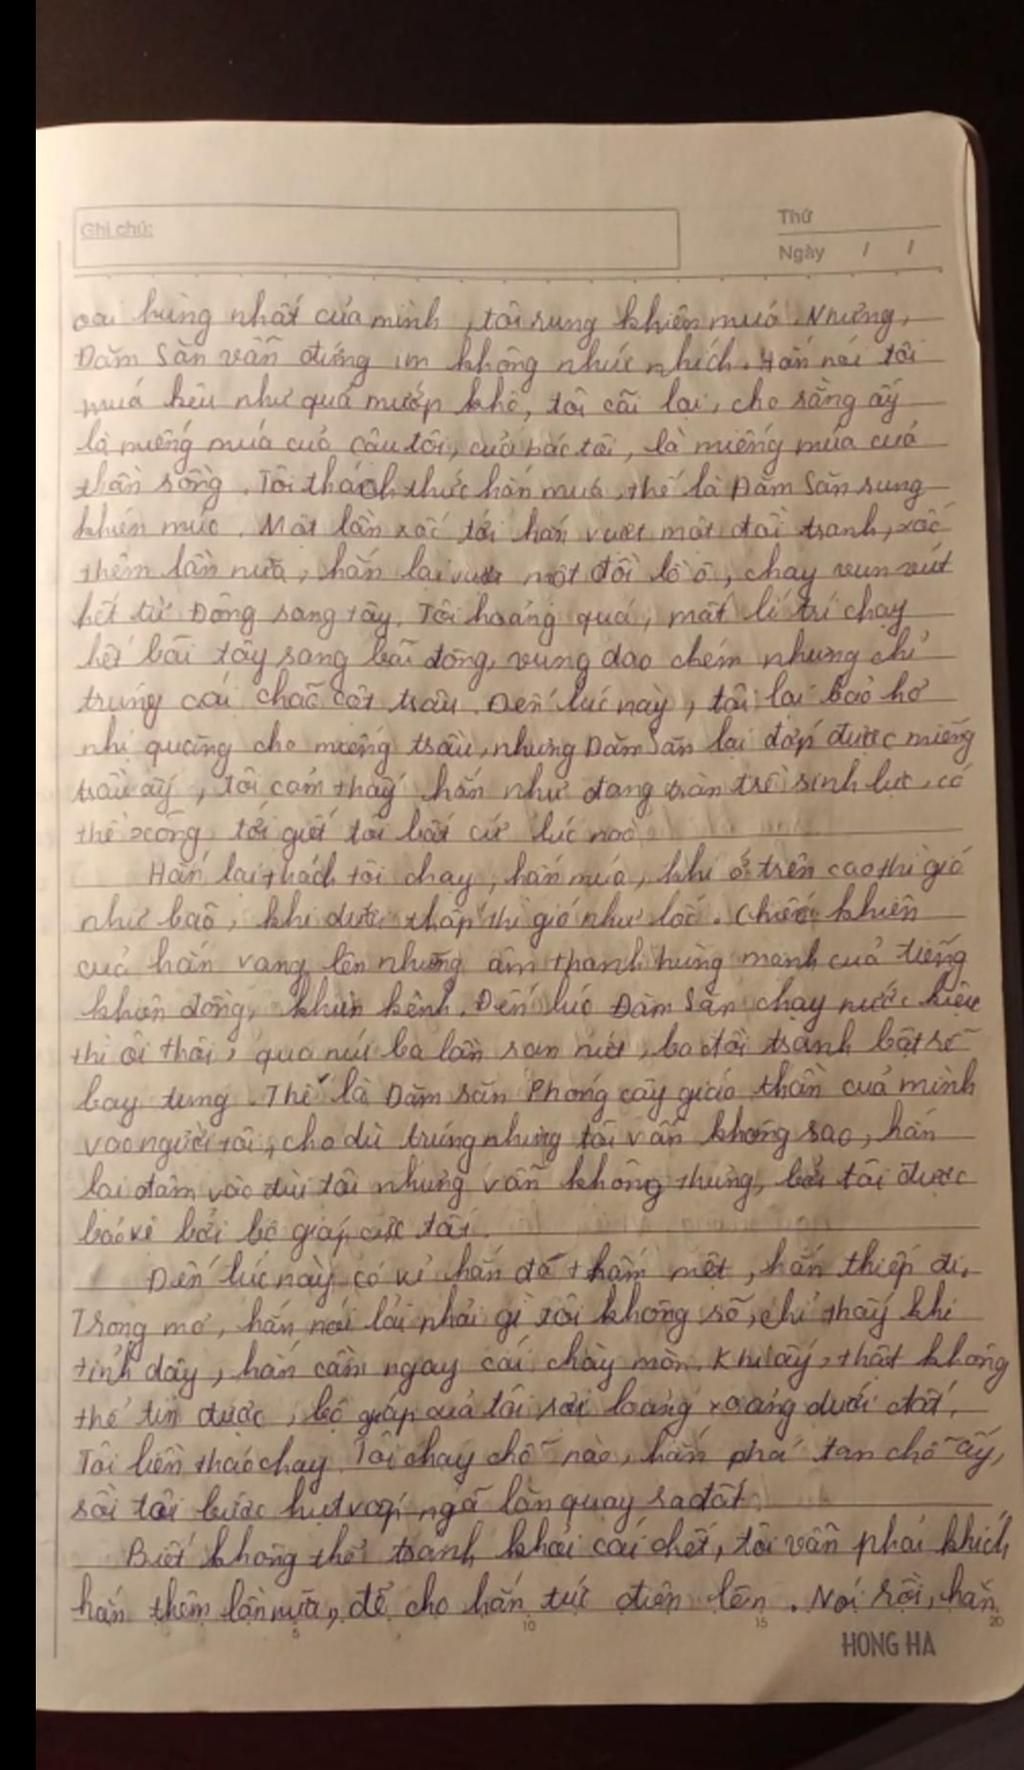 Ghi chú:
Thứ
Ngày / /
oai hùng nhất của mình, tôi rung khiên múa. Nhưng,
Đăm Săn vẫn đứng im không nhúc nhích. Hắn nói tôi
múa kêu như quả mướp khô, tôi cãi lại, cho rằng ấy
là miếng múa của cậu tôi, của bác tôi, là miếng múa của
thần sông. Tôi thách thức hắn múa, thế là Đăm Săn rung
khiên múa. Một lần xốc tới hắn vượt một đồi tranh, xốc
thêm lần nữa, hắn lại vượt một đồi lồ ô, chạy vun vút
hết từ Đông sang tây. Tôi hoảng quá, mất lí trí chạy
hết bãi tây sang bãi đông, vung dao chém nhưng chỉ
trúng cái chão cột trâu. Đến lúc này, tôi lại bảo hơ
nhị quăng cho miếng trầu, nhưng Đăm Săn lại đớp được miếng
trầu ấy, tôi cảm thấy hắn như đang tràn trề sinh lực, có
thể xông tới giết tôi bất cứ lúc nào
Hắn lại thách tôi chạy, hắn múa, khi ở trên cao thì gió
như bão, khi dưới thấp thì gió như lốc. Chiếc khiên
của hắn vang lên những âm thanh hùng mạnh của tiếng
khiên đồng, khiên kênh. Đến lúc Đăm Săn chạy nước kiệu
thì ôi thôi, quả núi ba lần rạn nứt, ba đồi tranh bật rễ
bay tung. Thế là Đăm Săn Phóng cây giáo thần của mình
vào người tôi, cho dù trúng nhưng tôi vẫn không sao, hắn
lại đâm vào đùi tôi nhưng vẫn không thủng, bởi tôi được
bảo vệ bởi bộ giáp cực tốt.
Đến lúc này, có vẻ hắn đã thấm mệt, hắn thiếp đi.
Trong mơ, hắn nói lải nhải gì tôi không rõ, chỉ thấy khi
tỉnh dậy, hắn cầm ngay cái chày mòn. Khi ấy, thật không
thể tin được, bộ giáp của tôi rơi loảng xoảng dưới đất.
Tôi liền tháo chạy. Tôi chạy chỗ nào, hắn phá tan chỗ ấy,
rồi tôi bước hụt vấp ngã lăn quay ra đất.
Biết không thể tránh khỏi cái chết, tôi vẫn phải khích
hắn thêm lần nữa, để cho hắn tức điên lên. Nói rồi, hắn
5 10 15 20
HONG HA